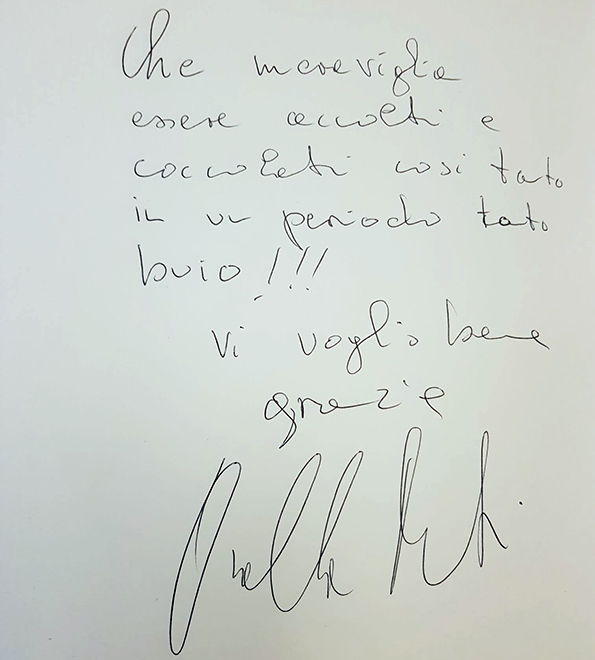 Che meraviglia
essere accolti e
coccolati così tanto
in un periodo tanto
buio!!!
Vi voglio bene
grazie